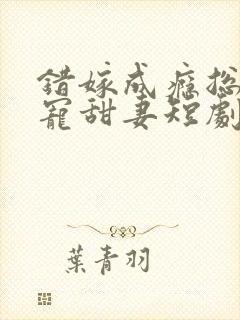 錯嫁成癮總
寵甜妻短劇
葉青羽